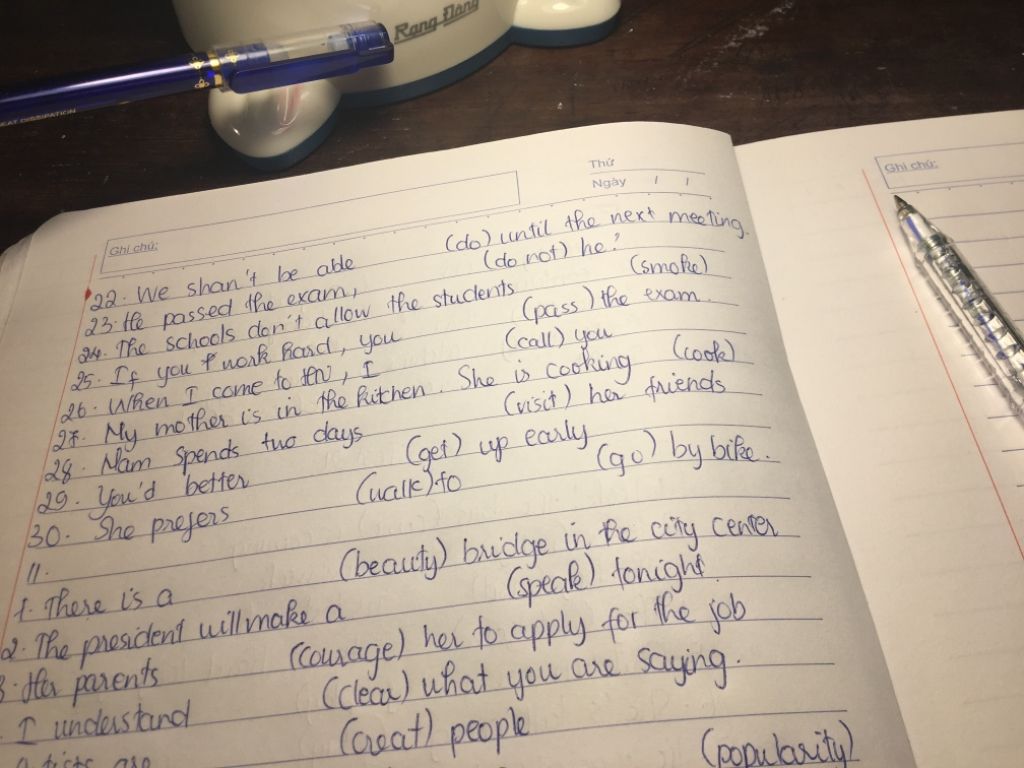 Rạng Đông
HEAT DISSIPATION
Thứ
Ngày / /
Ghi chú:
Ghi chú:
22. We shan't be able (do) until the next meeting.
23. He passed the exam, (do not) he?
24. The schools don't allow the students (smoke)
25. If you work hard, you (pass) the exam.
26. When I come to, I (call) you
27. My mother is in the kitchen. She is cooking (cook)
28. Nam spends two days (visit) her friends
29. You'd better (get) up early
30. She prefers (walk) to (go) by bike.
II.
1. There is a (beauty) bridge in the city center
2. The president will make a (speak) tonight.
3. Her parents (courage) her to apply for the job
. I understand (clear) what you are saying.
are (creat) people
(popularity)